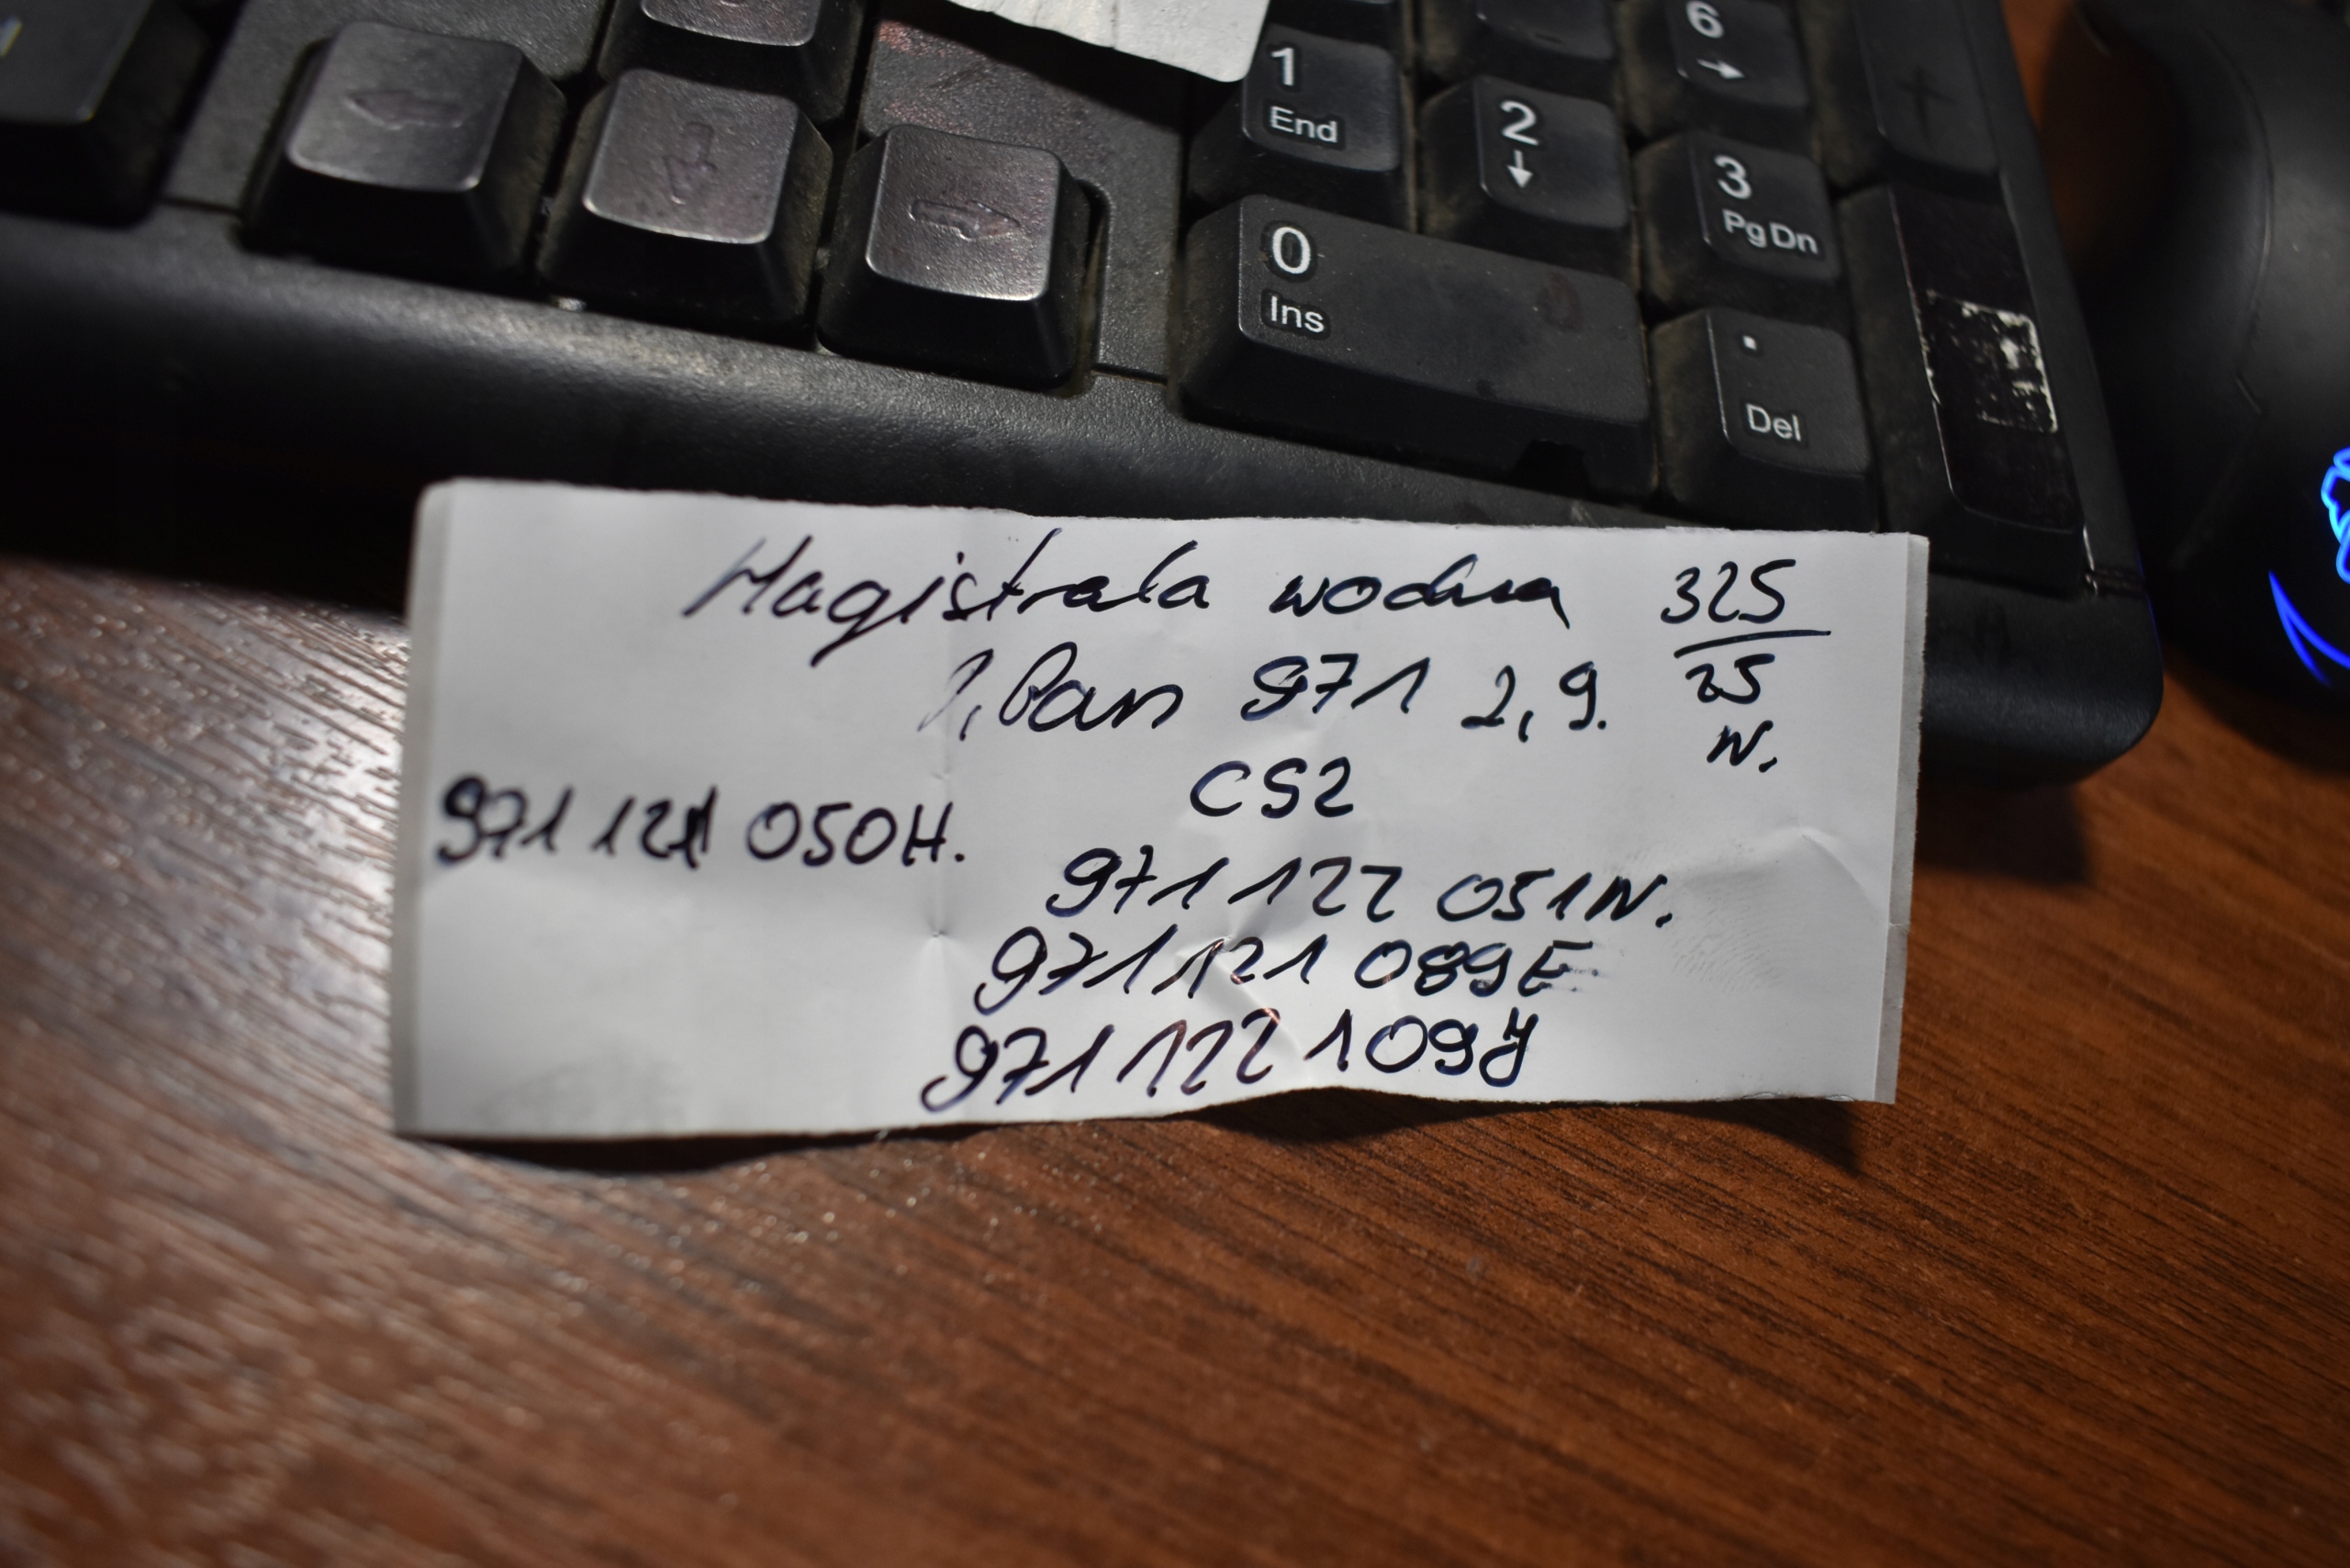 6
1
End
2
3
Pg Dn
0
Ins
.
Del
Magistrala wodna 325
Pan 971 2,9. 25
N.
CS2
971 121 050H.
971 122 051N.
971 121 089E
971 122 109J